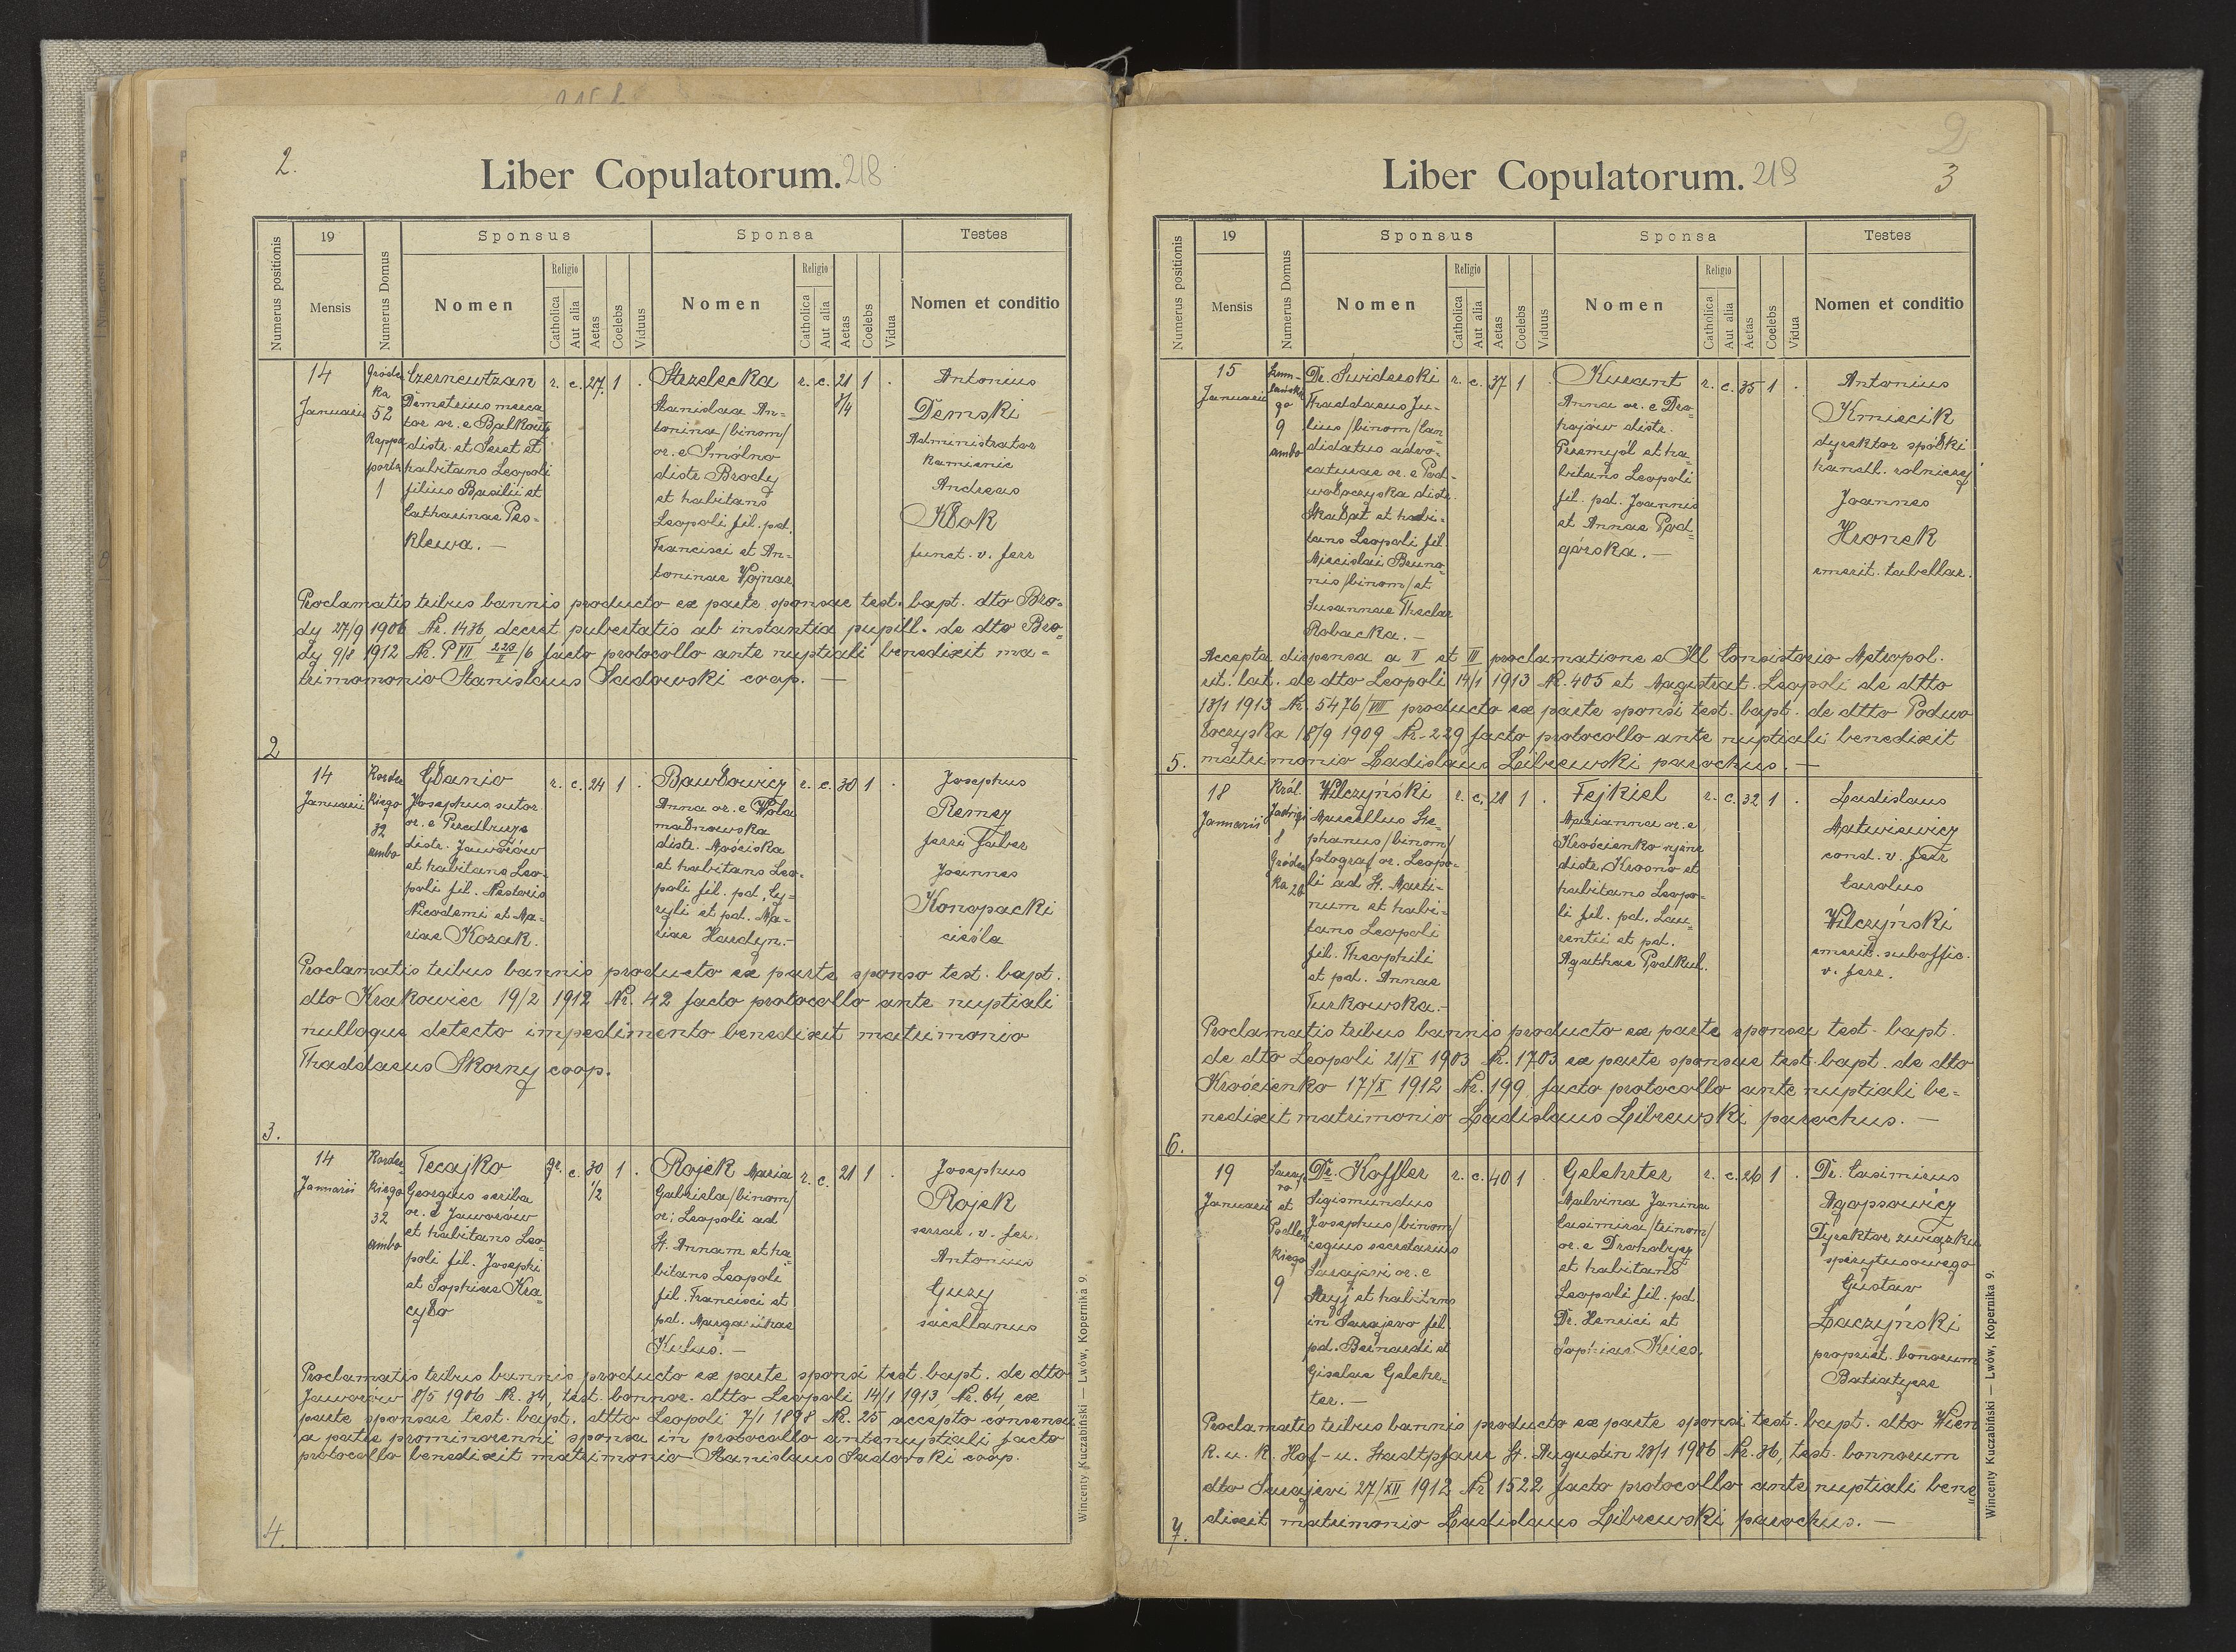 2.
Liber Copulatorum. 218
Numerus positionis
19
Mensis
Numerus Domus
Sponsus
Nomen
Religio
Catholica
Aut alia
Aetas
Coelebs
Viduus
Sponsa
Nomen
Religio
Catholica
Aut alia
Aetas
Coelebs
Vidua
Testes
Nomen et conditio
2
14
Januarii
Gróde
ka
52
Rappa
porta
1
Czernewtzan
Demetrius merca
tor or. e Balkoutz
distr. et Seret et
habitans Leopoli
filius Basilii et
Catharinae Pro-
klewa. —
r. c. 27. 1 .
Strzelecka
Stanislaa An-
tonina /binom/
or. e Smolno
distr Brody
et habitans
Leopoli fil. pd.
Francisci et An-
toninae Wojnar
r. c. 21 1 .
3/4
Antonius
Demski
Administrator
Kamienic
Andreas
Kłok
funct. v. ferr
Proclamatis tribus bannis producto ex parte sponsae test. bapt. dto Bro-
dy 27/9 1906 Nr. 1436, decret pubertatis ab instantia pupill. de dto Bro-
dy 9/8 1912 Nr. P VII 223/II /6 facto protocollo ante nuptiali benedixit ma-
trimonio Stanislaus Sadowski coop. —
3.
14
Januarii
Korde
kiego
32
ambo
Głanio
Josephus sutor
or. e Przedbuże
distr. Jaworów
et habitans Leo-
poli fil. Nestoris
Nicodemi et Ma-
riae Kozak.
r. c. 24 1 .
Bawłowicz
Anna or. e Wola
małnowska
distr. Mościska
et habitans Leo-
poli fil. pd. Cy-
ryli et pd. Ma-
riae Hardyn. -
r. c. 30 1 .
Josephus
Remez
ferri faber
Joannes
Konopacki
cieśla
Proclamatis tribus bannis producto ex parte sponso test. bapt.
dto Krakowiec 19/2 1912 Nr. 42 facto protocollo ante nuptiali
nulloque detecto impedimento benedixit matrimonio
Thaddaeus Skorny coop.
4.
14
Januarii
Korde
kiego
32
ambo
Tecajko
Georgius scriba
or. e Jaworów
et habitans Leo-
poli fil. Josephi
et Sophiae Kra-
cyło
gr. c. 30 1 .
1/2
Rojek Maria
Gabriela /binom/
or. Leopoli ad
St. Annam et ha-
bitans Leopoli
fil. Francisci et
pd. Margarithae
Kulus. —
r. c. 21 1 .
Josephus
Rojek
serrar. v. fer.
Antonius
Guzy
sacellanus
Proclamatis tribus bannis producto ex parte sponsi test. bapt. de dto
Jaworów 8/5 1906 Nr. 34, test. bonnor. dtto Leopoli 14/1 1913 Nr. 64, ex
parte sponsae test. bapt. dtto Leopoli 7/1 1898 Nr. 25 accepto consensu
a patre prominorenni sponsa in protocollo antenuptiali facto
protocollo benedixit matrimonio Stanislaus Sadowski coop.
Wincenty Kuczabiński — Lwów, Kopernika 9.
2
3
Liber Copulatorum. 219
Numerus positionis
19
Mensis
Numerus Domus
Sponsus
Nomen
Religio
Catholica
Aut alia
Aetas
Coelebs
Viduus
Sponsa
Nomen
Religio
Catholica
Aut alia
Aetas
Coelebs
Vidua
Testes
Nomen et conditio
5.
15
Januarii
go
9
ambo
Dr. Świderski
Thaddaeus Ju-
lius /binom/ can
didatus advo-
caturae or. e Pod-
wołoczyska distr.
Skałat et habi-
tans Leopoli fil.
Miecislai Bruno-
nis /binom/ et
Susannae Theclae
Robacka. —
r. c. 37 1 .
Kurant
Anna or. e Dro-
hojów distr.
Przemyśl et ha-
bitans Leopoli
fil. pd. Joannis
et Annae Pod-
górska. —
r. c. 35 1 .
Antonius
Kmiecik
dyrektor spółki
handl. rolniczej
Joannes
Hronek
emerit. tabellar.
Accepta dispensa a II et III proclamatione e Ill Consistorio Metropol.
rit. lat. de dto Leopoli 14/1 1913 Nr. 405 et Magistrat. Leopoli de dtto
13/1 1913 Nr. 5476/VIII producto ex parte sponsi test. bapt. de dtto Podwo
łoczyska 18/9 1909 Nr. 229 facto protocollo ante nuptiali benedixit
matrimonio Ladislaus Librewski parochus. —
6.
18
Januarii
Król.
Jadwigi
8
Gróde
ka 26
Wilczyński
Marcellus Ste-
phanus /binom/
fotograf or. Leopo-
li ad St. Marti-
num et habi-
tans Leopoli
fil. Theophili
et pd. Annae
Turkowska. -
r. c. 28 1 .
Fejkiel
Marianna or. e
Krościenko wyżne
distr. Krosno et
habitans Leopo-
li fil. pd. Lau-
rentii et pd.
Agathae Podkul.
r. c. 32 1 .
Ladislaus
Matwiewicz
cond. v. ferr
Carolus
Wilczyński
emerit. suboffic.
v. ferr.
Proclamatis tribus bannis producto ex parte sponsi test. bapt.
de dto Leopoli 21/X 1903 Nr. 1703 ex parte sponsae test. bapt. de dto
Krościenko 17/X 1912 Nr. 199 facto protocollo ante nuptiali be-
nedixit matrimonio Ladislaus Librewski parochus. —
7.
19
Januarii
Saraje
vo
et
Padlew
kiego
9
Dr. Koffler
Sigismundus
Josephus /binom/
regius secretarius
Sarajevi or. e
Stryj et habitans
in Sarajevo fil.
pd. Bernardi et
Giselae Gelehr-
ter. —
r. c. 40 1 .
Gelehrter
Malvina Janina
Casimira /trinom/
or. e Drohobycz
et habitans
Leopoli fil. pd.
Dr. Henrici et
Sophiae Kries.
r. c. 26 1 .
Dr. Casimirus
Agopsowicz
Dyrektor związku
spirytusowego
Gustav
Łączyński
propriet. bonorum
Batiatycze
Proclamatis tribus bannis producto ex parte sponsi test. bapt. dto Wien
K. u. K. Hof- u. Stadtpfarre St. Augustin 23/1 1906 Nr. 36, test. bonnorum
dto Sarajevi 27/XII 1912 Nr 1522 facto protocollo ante nuptiali bene
dixit matrimonio Ladislaus Librewski parochus. —
Wincenty Kuczabiński — Lwów, Kopernika 9.